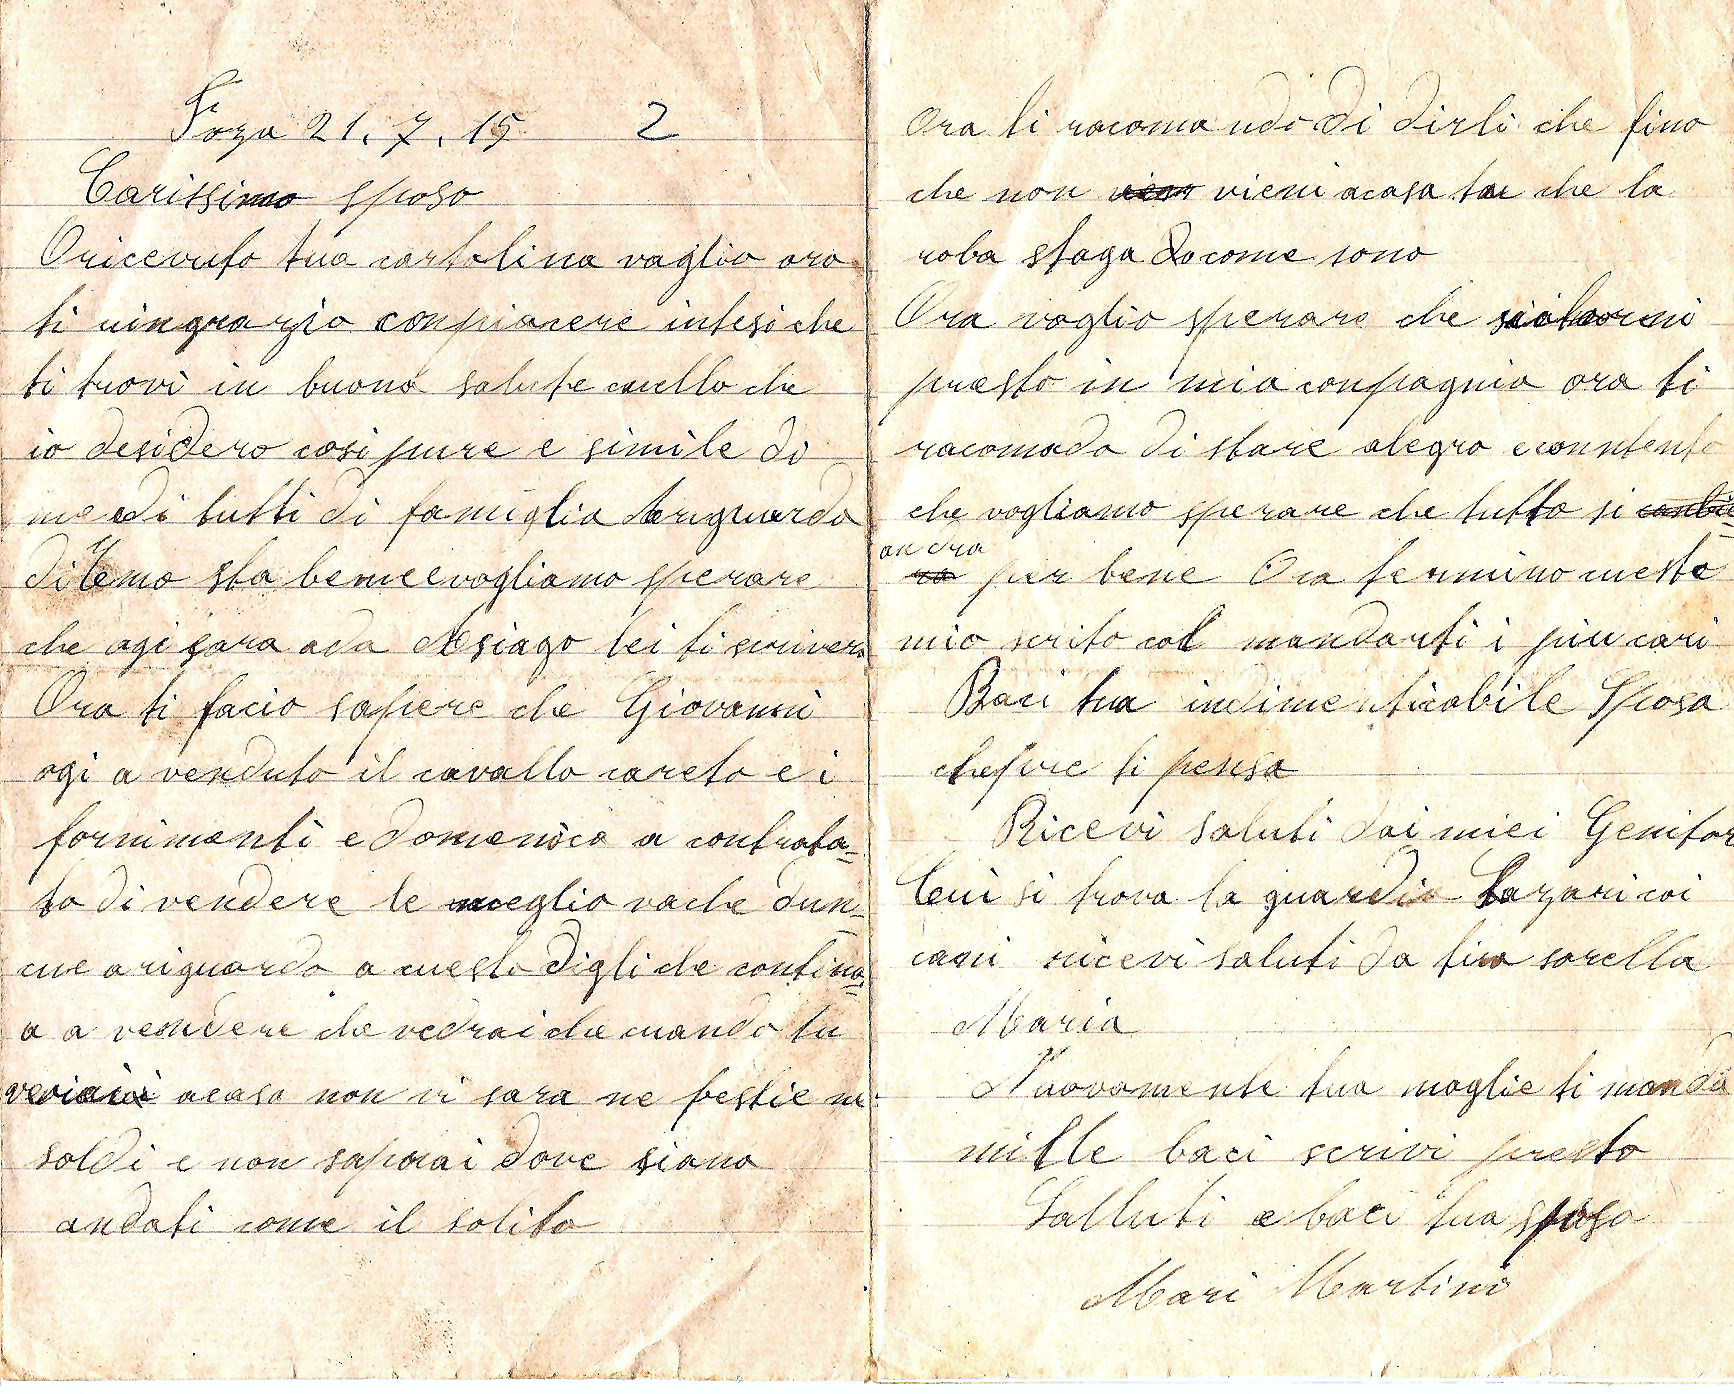 Foza 21.7.15 2
Carissimo sposo
Oricevuto tua cartolina vaglio ora
ti ringrazio conpiacere intesi che
ti trovi in buona salute cuello che
io desidero cosi pure e simile di
me edi tutti di famiglia Ariguardo
di Memo sta bene evogliamo sperare
che ogi sara ada Asiago lei ti scrivera
Ora ti facio sapere che Giovanni
ogi a venduto il cavallo careto e i
fornimenti e domenica a contrata=
to di vendere le meglio vache dun=
cue a riguardo a cuesto digli che contina=
a a vendere che vedrai che cuando tu
acasa non vi sara ne bestie ne
soldi e non saporai dove siano
andati come il solito
Ora ti racoma ndo di dirli che fino
che non vieni acasa tu che la
roba staga come sono
Ora voglio sperare che
presto in mia conpagnia ora ti
racomado di stare alegro e conntento
che vogliamo sperare che tutto si
andra per bene Ora termino cuesto
mio scrito col mandarti i piu cari
Baci tua indimenticabile Sposa
che pre ti pensa
Ricevi saluti dai miei Genitor
Cui si trova la guardia Lazari coi
cani ricevi saluti da tua sorella
Maria
Nuovamente tua moglie ti manda
mille baci scrivi presto
Salluti e baci tua sposa
Mari Martini